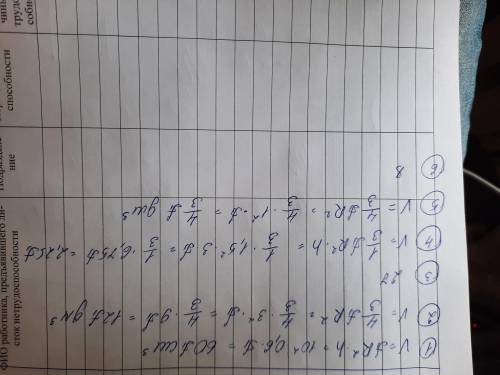 ФИО работника, предъявившего ли-
сток нетрудоспособности
ние
способности
① V= πR²h = 10²·0,6·π = 60π см³
② V= 4/3 πR² = 4/3 · 3² · π = 4/3 · 9π = 12π дм³
③ 27
④ V= 1/3 πR²·h = 1/3 · 1,5²·3π = 1/3 · 6,75π = 2,25π
⑤ V= 4/3 πR² = 4/3 · 1²·π = 4/3 π дм³
⑥ 8